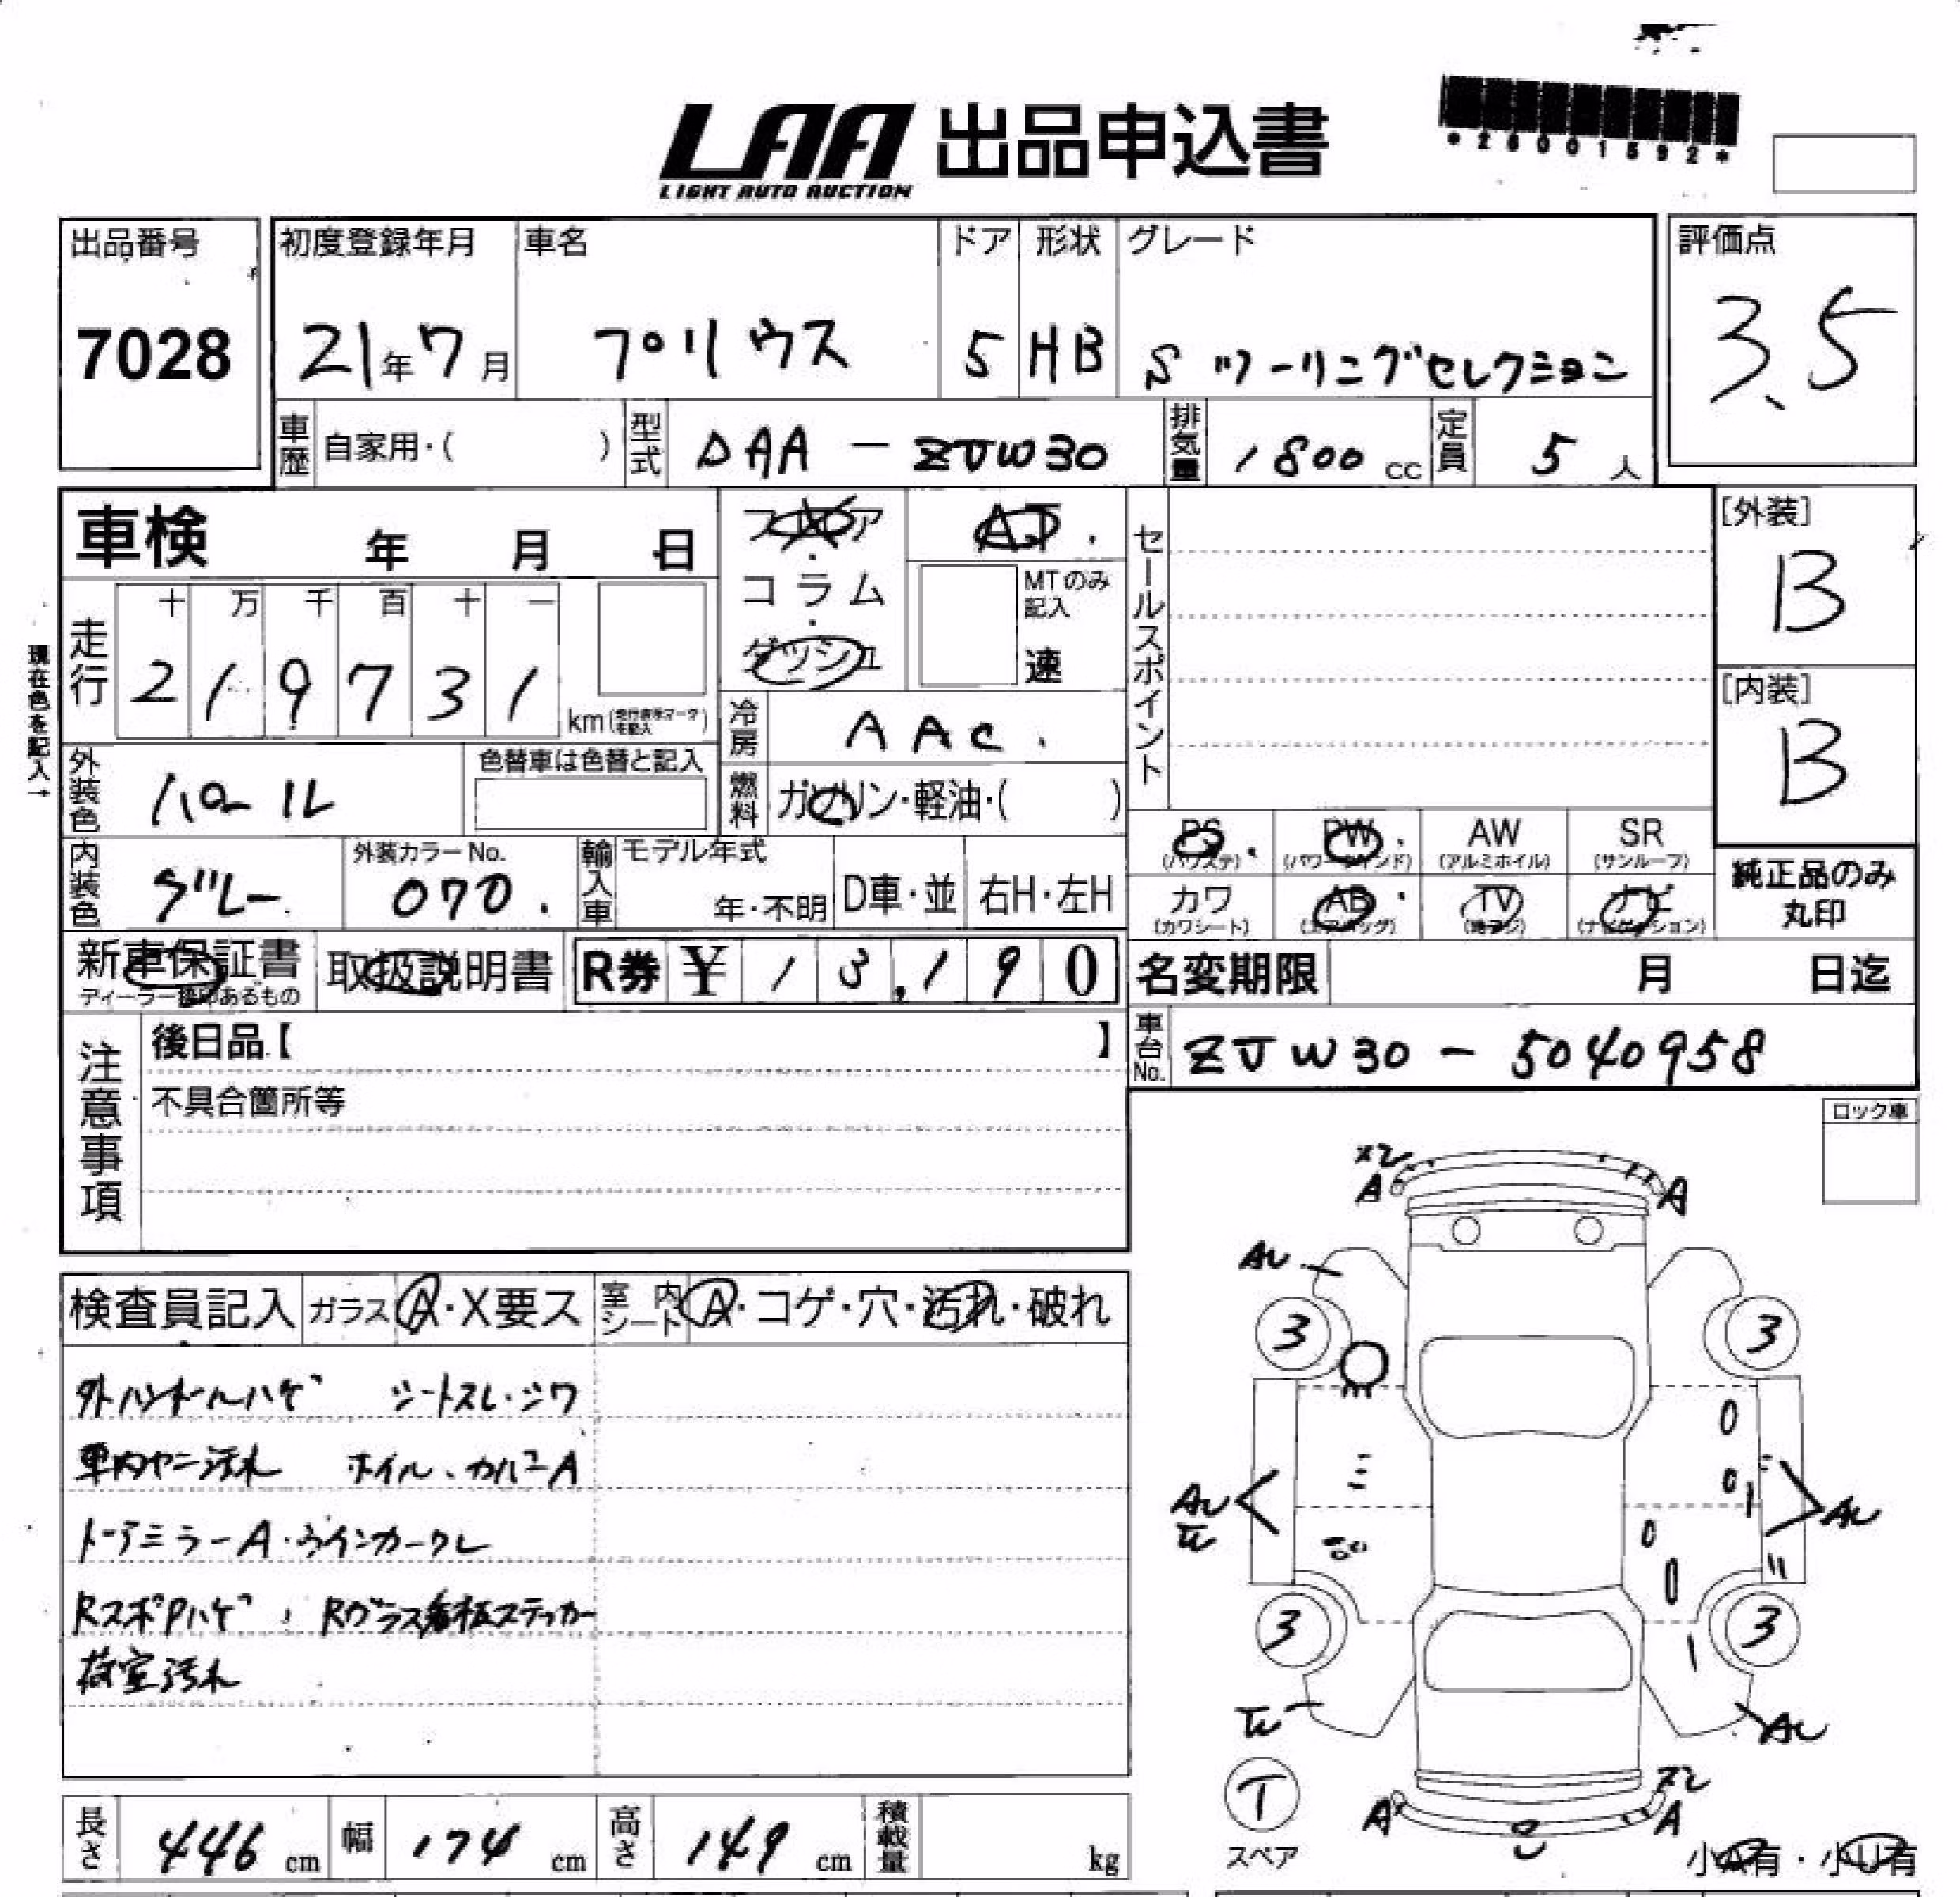 LAA 出品申込書
LIGHT AUTO AUCTION
*26001592*
出品番号
7028
初度登録年月
21年7月
車名
プリウス
ドア
5
形状
HB
グレード
S ツーリングセレクション
評価点
3.5
車歴 自家用・( )
型式 DAA-ZVW30
排気量 1800cc
定員 5人
車検 年 月 日
フロア・コラム・ダッシュ
AT
MTのみ記入
速
セールスポイント
[外装]
B
[内装]
B
現在色を記入→
走行
十 万 千 百 十 一
2 1 9 7 3 1 km
冷房 AAC
外装色 パール
色替車は色替と記入
燃料 ガソリン・軽油・( )
内装色 グレー
外装カラーNo.
070
輸入車 モデル年式
年・不明 D車・並 右H・左H
PS (パワステ)
PW (パワーウインド)
AW (アルミホイル)
SR (サンルーフ)
カワ (カワシート)
AB (エアバッグ)
TV
ナビ (ナビゲーション)
純正品のみ丸印
新車保証書
ディーラー捺印あるもの
取扱説明書
R券 ¥13,190
名変期限 月 日迄
車台No. ZVW30-5040958
注意事項
後日品【 】
不具合箇所等
ロック車
検査員記入 ガラス A・X要ス 室内シート A・コゲ・穴・汚れ・破れ
外ハンドルハゲ シートスレ・シワ
車内ヤニ汚れ ホイル、カバーA
ドアミラーA・ウインカーワレ
RスポPハゲ、Rガラス看板ステッカー
荷室汚れ
X2
A A
AU
3 3
AU AU
3 3
AU
X2
A A
T
スペア
小A有・小U有
長さ 446cm 幅 174cm 高さ 149cm 積載量 kg